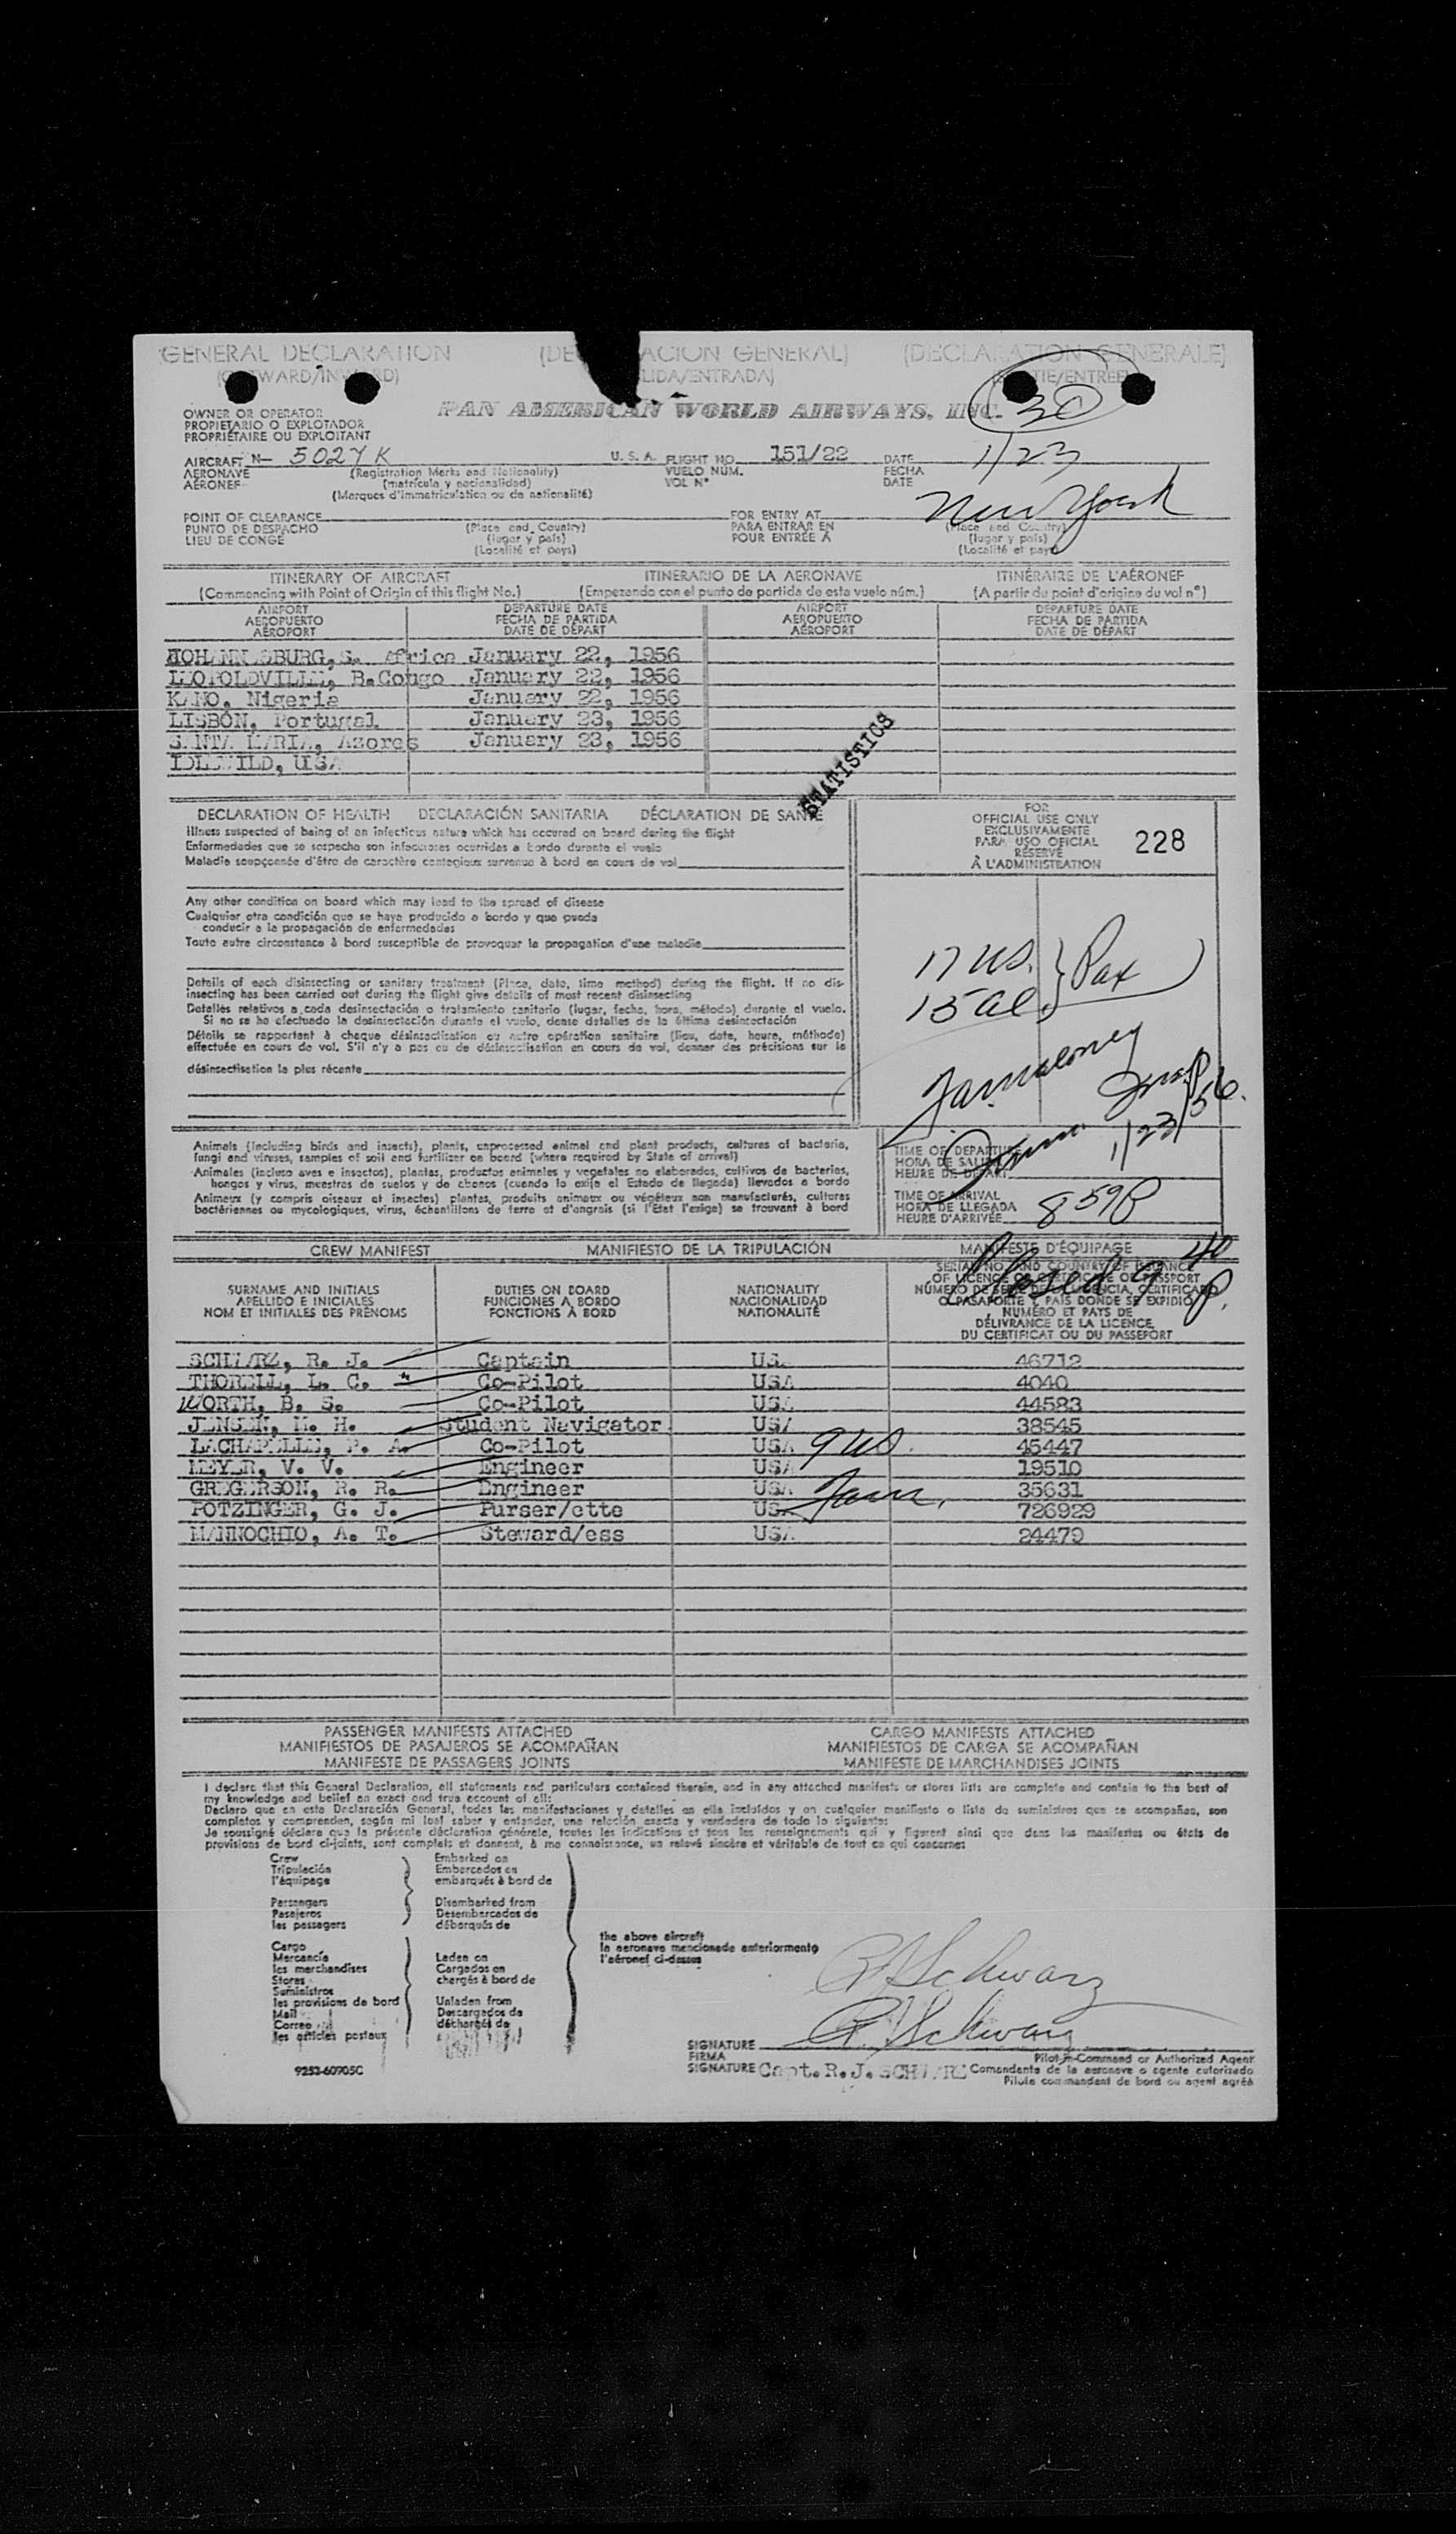 GENERAL DECLARATION (DE ACION GENERAL) (DECLARATION GENERALE)
LIDA/ENTRADA)
PAN AMERICAN WORLD AIRWAYS, INC. 30
OWNER OR OPERATOR
PROPIETARIO O EXPLOTADOR
PROPRIÉTAIRE OU EXPLOITANT
AIRCRAFT N- 5027K U. S. A. FLIGHT NO. 151/22 DATE 1/23
AERONAVE (Registration Marks and Nationality) VUELO NÚM. FECHA
AÉRONEF (matrícula y nacionalidad) VOL Nº DATE
(Marques d'immatriculation ou de nationalité)
New York
POINT OF CLEARANCE FOR ENTRY AT
PUNTO DE DESPACHO (Place and Country) PARA ENTRAR EN (Place and Country)
LIEU DE CONGÉ (lugar y país) POUR ENTRÉE À (lugar y país)
(Localité et pays) (Localité et pays)
ITINERARY OF AIRCRAFT ITINERARIO DE LA AERONAVE ITINÉRAIRE DE L'AÉRONEF
(Commencing with Point of Origin of this flight No.) (Empezando con el punto de partida de este vuelo núm.) (A partir du point d'origine du vol nº)
AIRPORT DEPARTURE DATE AIRPORT DEPARTURE DATE
AEROPUERTO FECHA DE PARTIDA AEROPUERTO FECHA DE PARTIDA
AÉROPORT DATE DE DÉPART AÉROPORT DATE DE DÉPART
JOHANNESBURG, S. Africa January 22, 1956
LEOPOLDVILLE, B.Congo January 22, 1956
KANO, Nigeria January 22, 1956
LISBON, Portugal January 23, 1956
SANTA MARIA, Azores January 23, 1956
IDLEWILD, USA
STATISTICS
DECLARATION OF HEALTH DECLARACIÓN SANITARIA DÉCLARATION DE SANTÉ
Illness suspected of being of an infectious nature which has occured on board during the flight
Enfermedades que se sospecha son infecciosas ocurridas a bordo durante el vuelo
Maladie soupçonnée d'être de caractère contagieux survenue à bord en cours de vol
Any other condition on board which may lead to the spread of disease
Cualquier otra condición que se haya producido a bordo y que pueda
conducir a la propagación de enfermedades
Toute autre circonstance à bord susceptible de provoquer la propagation d'une maladie
Details of each disinsecting or sanitary treatment (Place, date, time method) during the flight. If no dis-
insecting has been carried out during the flight give details of most recent disinsecting
Detalles relativos a cada desinsectación o tratamiento sanitario (lugar, fecha, hora, método) durante el vuelo.
Si no se ha efectuado la desinsectación durante el vuelo, dense detalles de la última desinsectación
Détails se rapportant à chaque désinsectisation ou autre opération sanitaire (lieu, date, heure, méthode)
effectuée en cours de vol. S'il n'y a pas eu de désinsectisation en cours de vol, donner des précisions sur la
désinsectisation la plus récente
FOR
OFFICIAL USE ONLY
EXCLUSIVAMENTE
PARA USO OFICIAL 228
RÉSERVÉ
À L'ADMINISTRATION
17 US.
15 al. } Pax
1/23/56.
Animals (including birds and insects), plants, unprocessed animal and plant products, cultures of bacteria,
fungi and viruses, samples of soil and fertilizer on board (where required by State of arrival)
Animales (incluso aves e insectos), plantas, productos animales y vegetales no elaborados, cultivos de bacterias,
hongos y virus, muestras de suelos y de abonos (cuando lo exija el Estado de llegada) llevados a bordo
Animaux (y compris oiseaux et insectes) plantes, produits animaux ou végétaux non manufacturés, cultures
bactériennes ou mycologiques, virus, échantillons de terre et d'engrais (si l'État l'exige) se trouvant à bord
TIME OF DEPARTURE
HORA DE SALIDA
HEURE DE DÉPART
TIME OF ARRIVAL
HORA DE LLEGADA
HEURE D'ARRIVÉE 8 59P
CREW MANIFEST MANIFIESTO DE LA TRIPULACIÓN MANIFESTE D'ÉQUIPAGE
Cleared 9 40 P.
SURNAME AND INITIALS DUTIES ON BOARD NATIONALITY SERIAL NO. AND COUNTRY OF ISSUANCE
APELLIDO E INICIALES FUNCIONES A BORDO NACIONALIDAD OF LICENCE OR CERTIFICATE OR PASSPORT
NOM ET INITIALES DES PRÉNOMS FONCTIONS À BORD NATIONALITÉ NÚMERO DE SERIE DE LA LICENCIA, CERTIFICADO
O PASAPORTE Y PAÍS DONDE SE EXPIDIÓ
NUMÉRO ET PAYS DE
DÉLIVRANCE DE LA LICENCE
DU CERTIFICAT OU DU PASSEPORT
SCHWARZ, R. J. Captain USA 46712
THORELL, L. C. Co-Pilot USA 4040
WORTH, B. S. Co-Pilot USA 44583
JENSEN, M. H. Student Navigator USA 38545
LACHAPELLE, P. A. Co-Pilot USA 9 US. 45447
MEYER, V. V. Engineer USA 19510
GREGERSON, R. R. Engineer USA 35631
POTZINGER, G. J. Purser/ette USA 726929
MANNOCHIO, A. T. Steward/ess USA 24479
PASSENGER MANIFESTS ATTACHED CARGO MANIFESTS ATTACHED
MANIFIESTOS DE PASAJEROS SE ACOMPAÑAN MANIFIESTOS DE CARGA SE ACOMPAÑAN
MANIFESTE DE PASSAGERS JOINTS MANIFESTE DE MARCHANDISES JOINTS
I declare that this General Declaration, all statements and particulars contained therein, and in any attached manifests or stores lists are complete and contain to the best of
my knowledge and belief an exact and true account of all:
Declaro que en esta Declaración General, todas las manifestaciones y detalles en ella incluídos y en cualquier manifiesto o lista de suministros que se acompañan, son
completos y comprenden, según mi leal saber y entender, una relación exacta y verdadera de todo lo siguiente:
Je soussigné déclare que la présente déclaration générale, toutes les indications et tous les renseignements qui y figurent ainsi que dans les manifestes ou états de
provisions de bord ci-joints, sont complets et donnent, à ma connaissance, un relevé sincère et véritable de tout ce qui concerne:
Crew Embarked on
Tripulación Embarcados en
l'équipage embarqués à bord de
Passengers Disembarked from
Pasajeros Desembarcados de
les passagers débarqués de
the above aircraft
la aeronave mencionada anteriormente
l'aéronef ci-dessus
Cargo
Mercancía Laden on
les merchandises Cargados en
Stores chargés à bord de
Suministros
les provisions de bord Unladen from
Mail Descargados de
Correo déchargés de
les articles postaux
R J Schwarz
R J Schwarz
SIGNATURE Pilot-in-Command or Authorized Agent
FIRMA Comandante de la aeronave o agente autorizado
SIGNATURE Capt. R. J. SCHWARZ Pilote commandant de bord ou agent agréé
9252-60705C